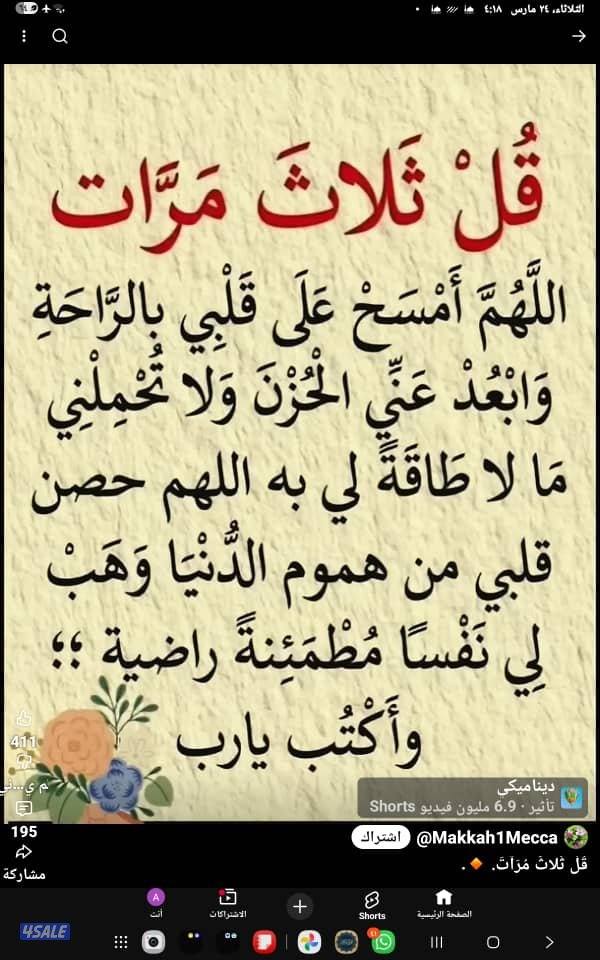 الثلاثاء، ٢٤ مارس ٤:١٨
قُلْ ثَلاثَ مَرَّات
اللَّهُمَّ أَمْسَحْ عَلَى قَلْبِي بِالرَّاحَةِ
وَابْعُدْ عَنِّي الْحُزْنَ وَلا تُحْمِلْنِي
مَا لا طَاقَةً لي به اللهم حصن
قلبي من هموم الدُّنْيَا وَهَبْ
لِي نَفْسًا مُطْمَئِنةً راضية ؛؛
وأَكْتُب يارب
411
195
مشاركة
ديناميكي
تأثير · 6.9 مليون فيديو Shorts
@Makkah1Mecca اشتراك
قُلْ ثَلاثَ مَرَاتَ. .
الصفحة الرئيسية
Shorts
الاشتراكات
A
أنت
4SALE